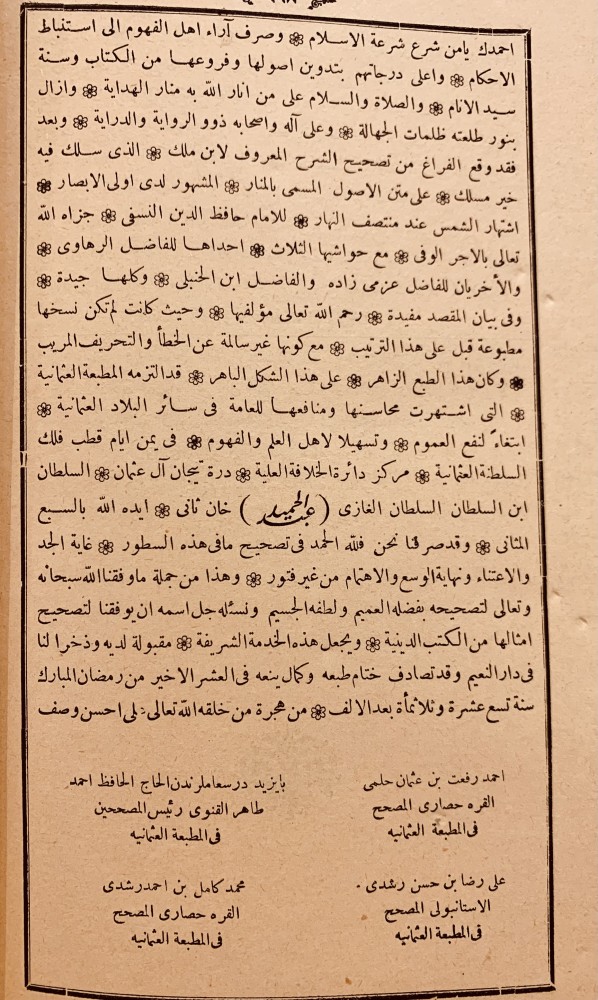 احمدك يامن شرع شرعة الاسلام ❁ وصرف آراء اهل الفهوم الى استنباط
الاحكام ❁ واعلى درجاتهم بتدوين اصولها وفروعها من الكتاب وسنة
سيد الانام ❁ والصلاة والسلام على من انار الله به منار الهداية ❁ وازال
بنور طلعته ظلمات الجهالة ❁ وعلى آله واصحابه ذوو الرواية والدراية ❁ وبعد
فقد وقع الفراغ من تصحيح الشرح المعروف لابن ملك ❁ الذى سلك فيه
خير مسلك ❁ على متن الاصول المسمى بالمنار ❁ المشهور لدى اولى الابصار ❁
اشتهار الشمس عند منتصف النهار ❁ للامام حافظ الدين النسفى ❁ جزاه الله
تعالى بالاجر الوفى ❁ مع حواشيها الثلاث ❁ احداها للفاضل الرهاوى ❁
والأخريان للفاضل عزمى زاده والفاضل ابن الحنبلى ❁ وكلها جيدة ❁
وفى بيان المقصد مفيدة ❁ رحم الله تعالى مؤلفيها ❁ وحيث كانت لم تكن نسخها
مطبوعة قبل على هذا الترتيب ❁ مع كونها غير سالمة عن الخطأ والتحريف المريب
❁ وكان هذا الطبع الزاهر ❁ على هذا الشكل الباهر ❁ قد التزمه المطبعة العثمانية
❁ التى اشتهرت محاسنها ومنافعها للعامة فى سائر البلاد العثمانية ❁
ابتغاءً لنفع العموم ❁ وتسهيلا لاهل العلم والفهوم ❁ فى يمن ايام قطب فلك
السلطنة العثمانية ❁ مركز دائرة الخلافة العلية ❁ درة تيجان آل عثمان ❁ السلطان
ابن السلطان السلطان الغازى (عبد الحميد) خان ثانى ❁ ايده الله بالسبع
المثانى ❁ وقد صرفنا نحن فلله الحمد فى تصحيح مافى هذه السطور ❁ غاية الجد
والاعتناء ونهاية الوسع والاهتمام من غير فتور ❁ وهذا من جملة ماوفقنا الله سبحانه
وتعالى لتصحيحه بفضله العميم ولطفه الجسيم ونسئله جل اسمه ان يوفقنا لتصحيح
امثالها من الكتب الدينية ❁ ويجعل هذه الخدمة الشريفة ❁ مقبولة لديه وذخرا لنا
فى دار النعيم وقد تصادف ختام طبعه وكمال ينعه فى العشر الاخير من رمضان المبارك
سنة تسع عشرة وثلاثمأة بعد الالف ❁ من هجرة من خلقه الله تعالى على احسن وصف
احمد رفعت بن عثمان حلمى
القره حصارى المصحح
فى المطبعة العثمانيه
بايزيد درسعاملرندن الحاج الحافظ احمد
طاهر القنوى رئيس المصححين
فى المطبعة العثمانيه
على رضا بن حسن رشدى
الاستانبولى المصحح
فى المطبعة العثمانيه
محمد كامل بن احمد رشدى
القره حصارى المصحح
فى المطبعة العثمانيه